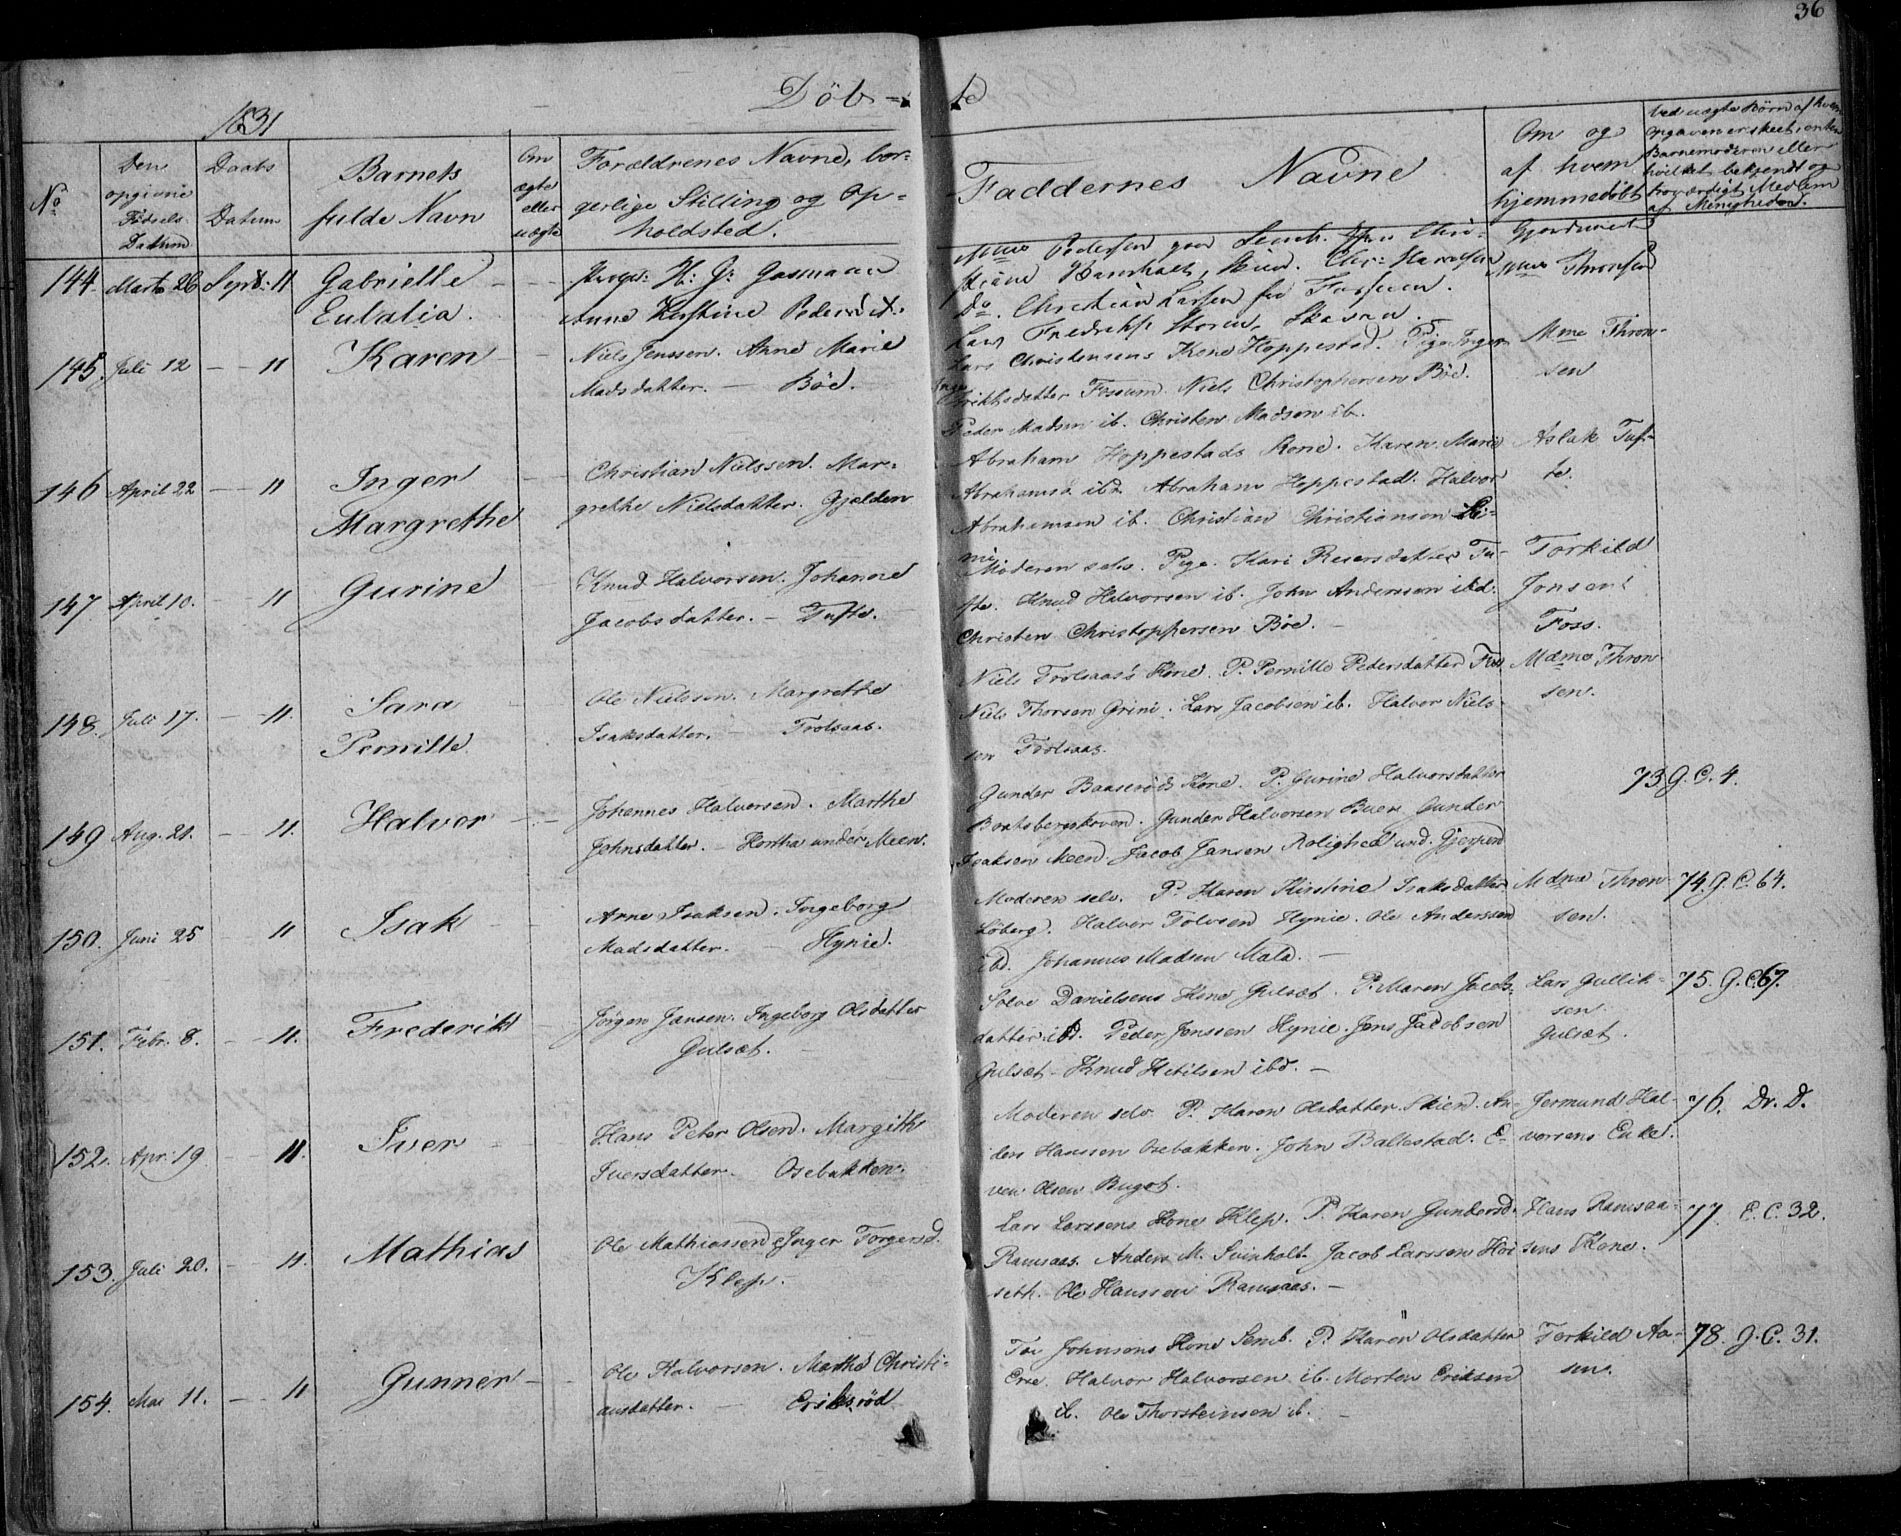 36
Döb-te
1831
No
Den opgivne Födsels Datum
Daabs Datum
Barnets fulde Navn
Om ægte eller uægte
Forældrenes Navne, borgerlige Stilling og Opholdsted.
Faddernes Navne
Om og af hvem hjemmedöbt
Ved uægte Börn af hvem Opgaven er skeet, enten Barnemoderen eller hvilket bekjendt og troværdigt Medlem af Menigheden.
144. Marts 26 Septb: 11 Gabrielle
Eulalia.
H: G: Gasmann
Anne Kirstine Peders
Pedersen
Chr: Hansen
Do. Christian Larsen for Fossum.
Mme Thronsen
145. Juli 12 — 11 Karen
Niels Jenssen. Anne Marie
Madsdatter. — Böe.
Lars Christensens Kone Hoppestad. Pige Inger
datter Fossum. Niels Christophersen Böe.
Peder Madsen ib. Christen Madsen ib.
Mme Thron-
sen
146 April 22 — 11 Inger
Margrethe
Christian Nielssen. Mar-
grethe Nielsdatter. Gjelden
Abraham Hoppestads Kone. Karen Marie
Abrahamsd. ibd. Abraham Hoppestad. Halvor
Abrahamsen ib. Christian Christiansen Gri-
ni
Aslak Tuf-
te.
147. April 10. — 11 Gurine
Knud Halvorsen. Johanne
Jacobsdatter. — Tufte.
Moderen selv. Pige. Kari Reiersdatter Tu-
fte. Knud Halvorsen ib. John Anderssen ibd.
Christen Christophersen Böe. —
Torkild
Jonsen
Foss.
148. Juli 17. — 11. Sara
Pernille
Ole Nielssen. Margrethe
Isaksdatter. — Trolsaas.
Niels Trolsaas's Kone. P. Pernille Pedersdatter
Niels Thorsen Grini. Lars Jacobsen ib. Halvor Niels-
sen Trolsaas.
Mdme Thron-
sen.
149 Aug. 21. — 11. Halvor
Johannes Halvorsen. Marthe
Johnsdatter. — Hortha under Meen.
Gunder Baaseröds Kone. P. Gurine Halvorsdatter
Bratsbergskoven. Gunder Halvorsen Buer. Gunder
Isaksen Meen. Jacob Jansen Rolighed und. Gjerpen
73 G. C. 4.
150. Juni 25 — 11 Isak
Arne Isaksen. Ingeborg
Madsdatter. — Hynie.
Moderen selv. P. Karen Kirstine Isaksdatter
Löberg. Halvor Tolvsen Hynie. Ole Anderssen
ibd. Johannes Madsen Mæla. —
Mdme Thron-
sen.
74. G. C. 64.
151. Febr. 8. — 11. Frederik
Jörgen Jansen. Ingeborg Olsdatter
Gulset. —
Solve Danielsens Kone Gulset. P. Maren Jacobs-
datter ibd. Peder Jenssen Hynie. Jens Jacobsen
Gulset — Knud Ketilsen ibd. —
Lars Gullik-
sen.
Gulset.
75. G. C. 67.
152. Apr. 19 — 11. Iver
Hans Peter Olsen. Margithe
Iversdatter. Osebakken.
Moderen selv P. Karen Olsdatter Skien. An-
ders Hanssen Osebakken. John Ballestad. E-
ven Olsen Bugot.
Jermund Hal-
vorsens Enke.
76. Dr. D.
153. Juli 20. — 11. Mathias
Ole Mathiassen. Inger Torgersd.
Klep.
Lars Larssens Kone Klep. P. Karen Gundersd.
Ramsaas. Anders M. Svinholt. Jacob Larssen Hoi
seth. Ole Hanssen Ramsaas. —
Hans Ramsaa-
sens Kone.
77. C. C. 32.
154. Mai 11. — 11 Gunner
Ole Halvorsen. Marthe Christi-
ansdatter. — Eriksröd
Tor Johnsens Kone Semb. P. Karen Olsdatter
Erie. Halvor Halvorsen ib. Morten Eriksen
ib. Ole Thorsteinsen ib. —
Torkild Aa-
sen.
78. G. C. 31.